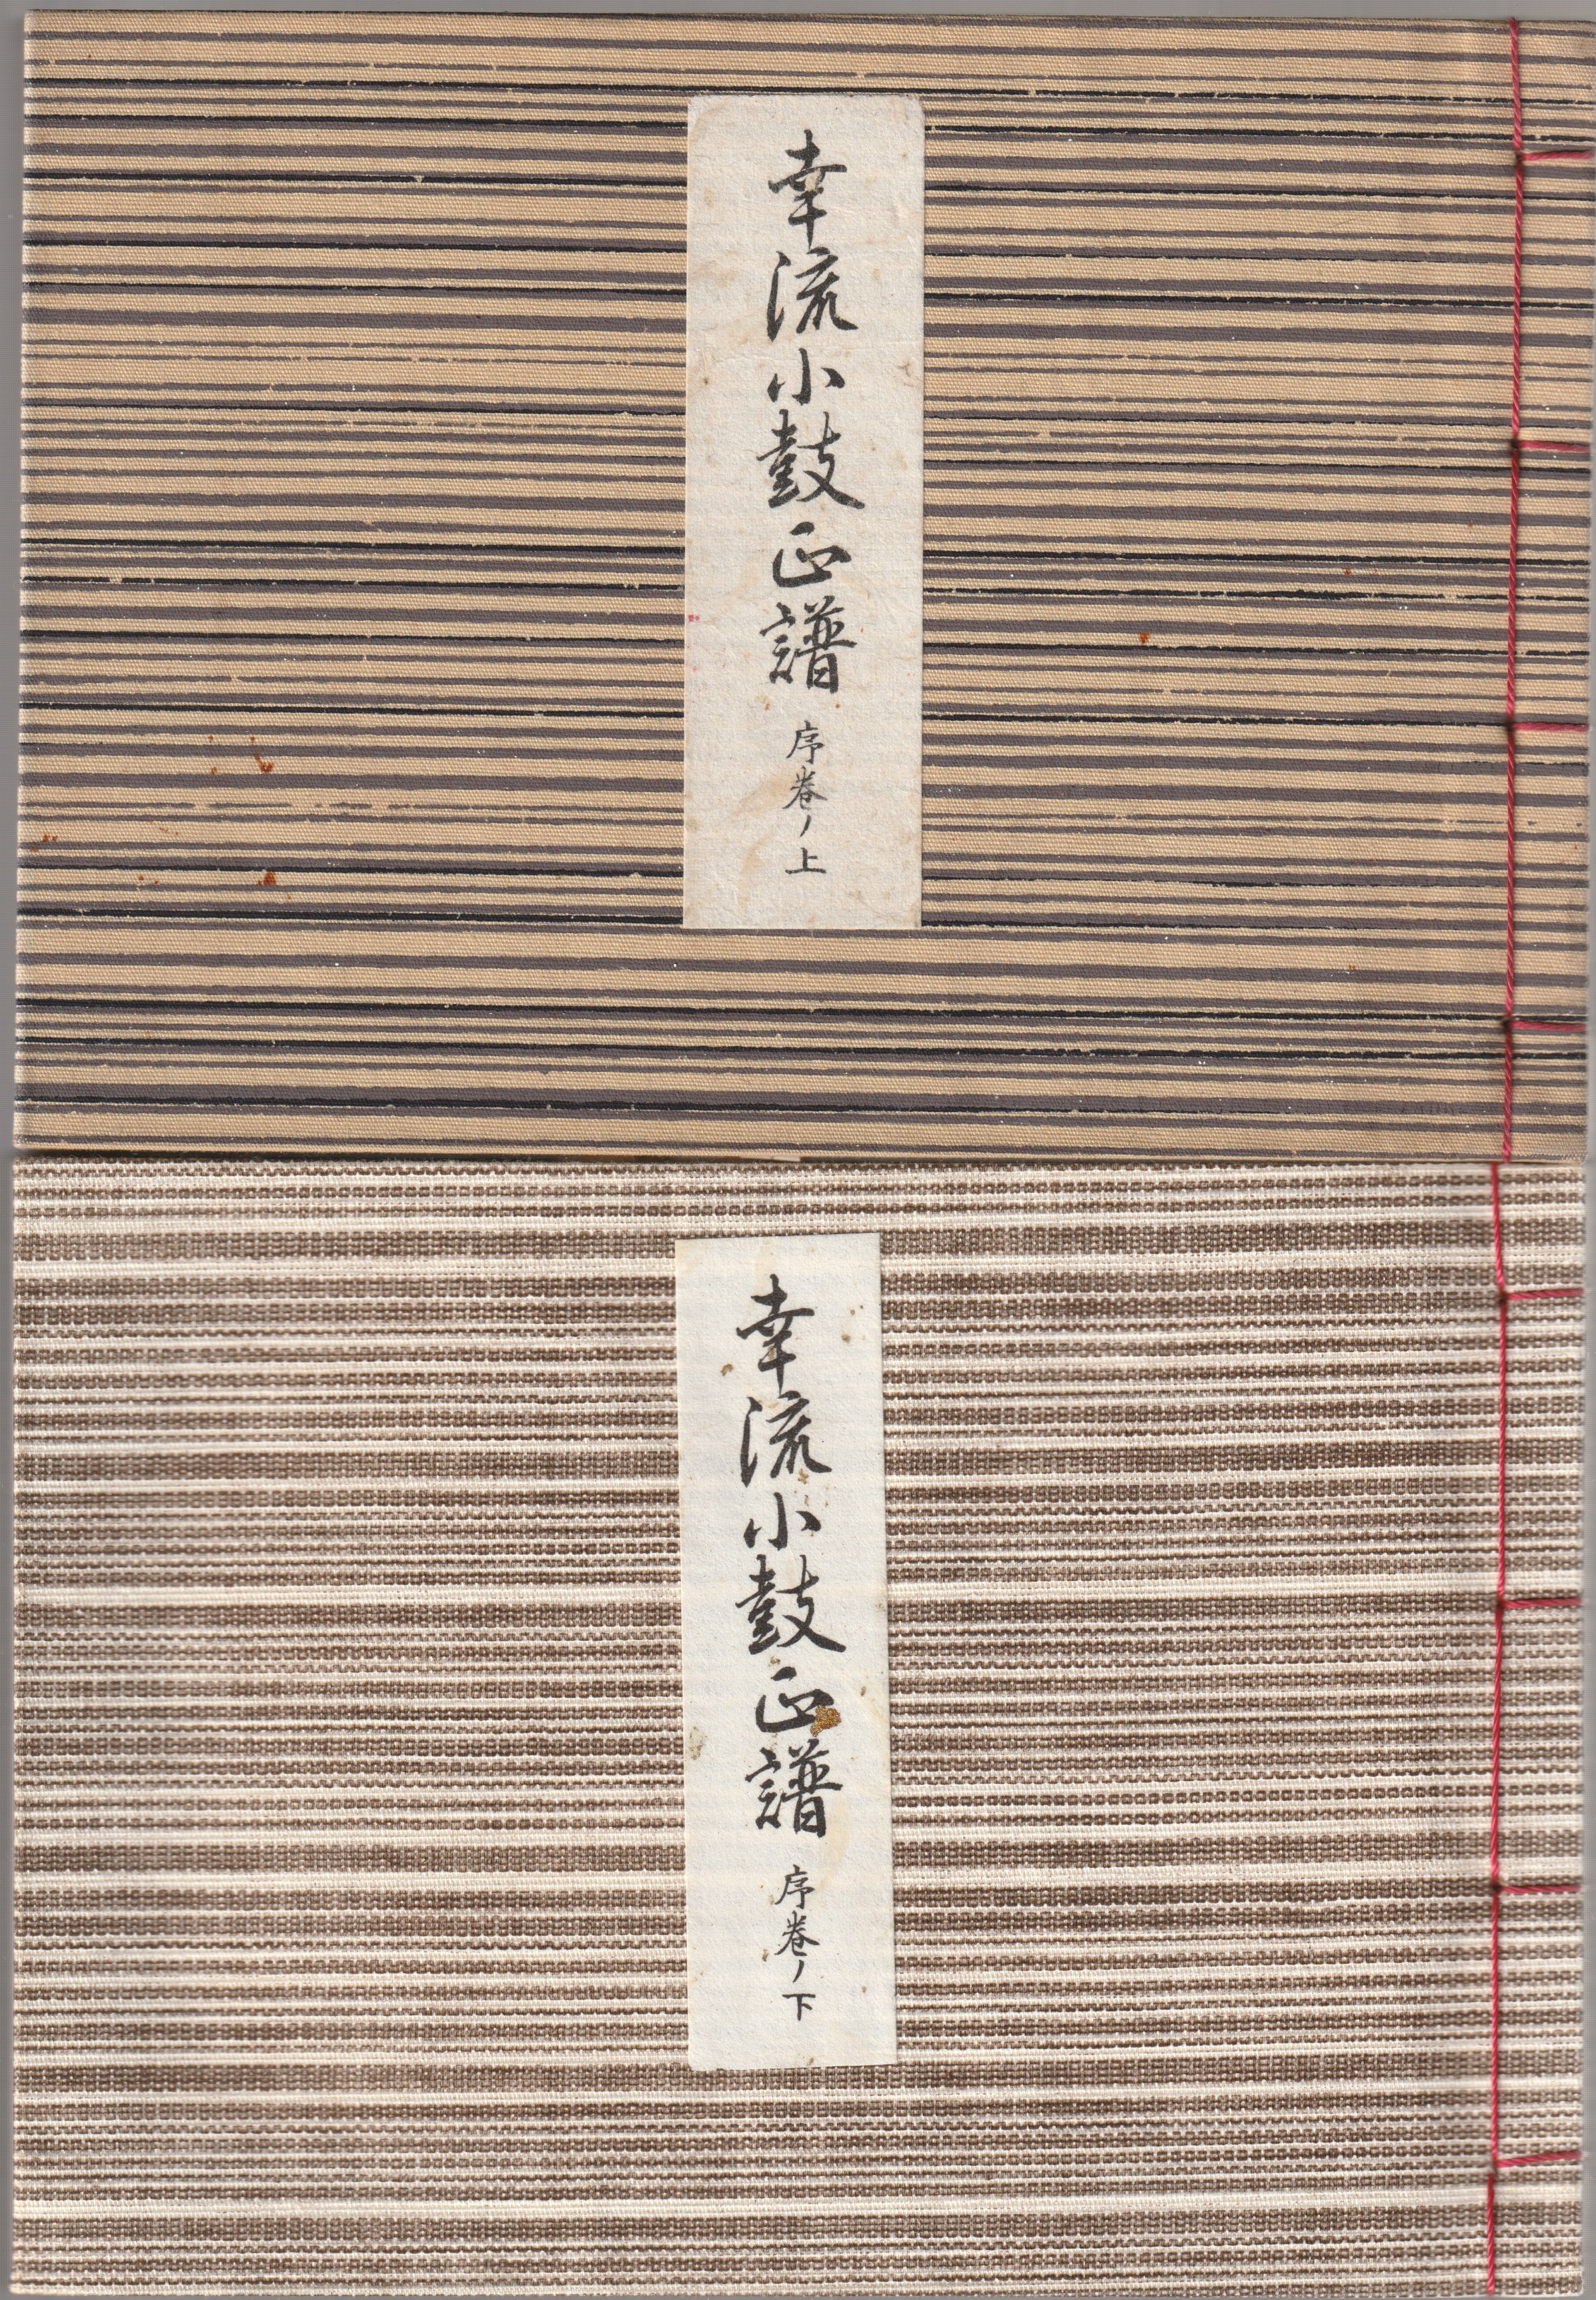 幸流小鼓正譜 序巻ノ上
幸流小鼓正譜 序巻ノ下